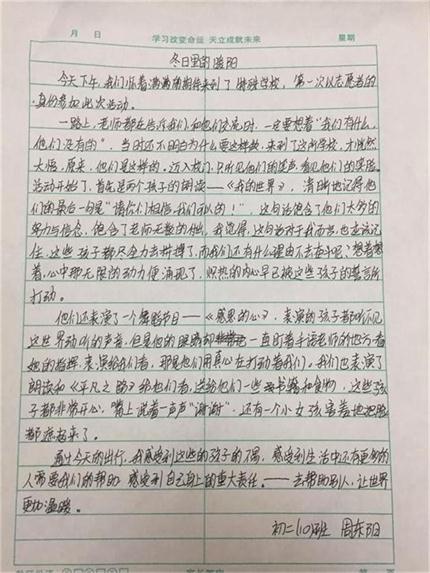 月 日 学习改变命运 天立成就未来 星期
冬日里的暖阳
今天下午,我们怀着满满的期待来到了特殊学校,第一次以志愿者的
身份参加此次活动。
一路上,老师都在告诉我们,和他们交流时,一定要想着“我们有什么,
他们没有的”,当时还不明白为什么要这样教,来到了这所学校,才恍然
大悟,原来,他们是这样的。迈入校门,只听见他们的笑声,看见他们的笑脸。
活动开始了,首先是两个孩子的朗读——《我的世界》,清晰地记得他
们的最后一句是“请你们相信,我们可以的!”,这句话饱含了他们太多的
努力与信念,饱含了老师无数的付出,我觉得,这句话对于我而言,也应该记
住,这些孩子都尽全力去拼搏了,而我们还有什么理由不去奋斗呢?想着想
着,心中那无限的动力便涌现了,炽热的内心早已被这些孩子的誓言所
打动。
他们还表演了一个舞蹈节目——《感恩的心》,表演的孩子都听不见
这世界动听的声音,但是他的眼睛却一直盯着手语老师的地方看
她的指挥,表演给我们看,那是他们用真心在打动着我们。我们也表演了
朗读和《平凡之路》给他们看,送给他们一些书籍和食物,这些孩
子都非常开心,嘴上说着一声声“谢谢”,还有一个小女孩害羞地把脸
都遮起来了。
通过今天的出行,我感受到这些的孩子的不易,感受到生活中还有更多的
人需要我们的帮助,感受到自己身上的重大责任。——去帮助别人,让世界
更加温暖。
初二(10)班 周东阳